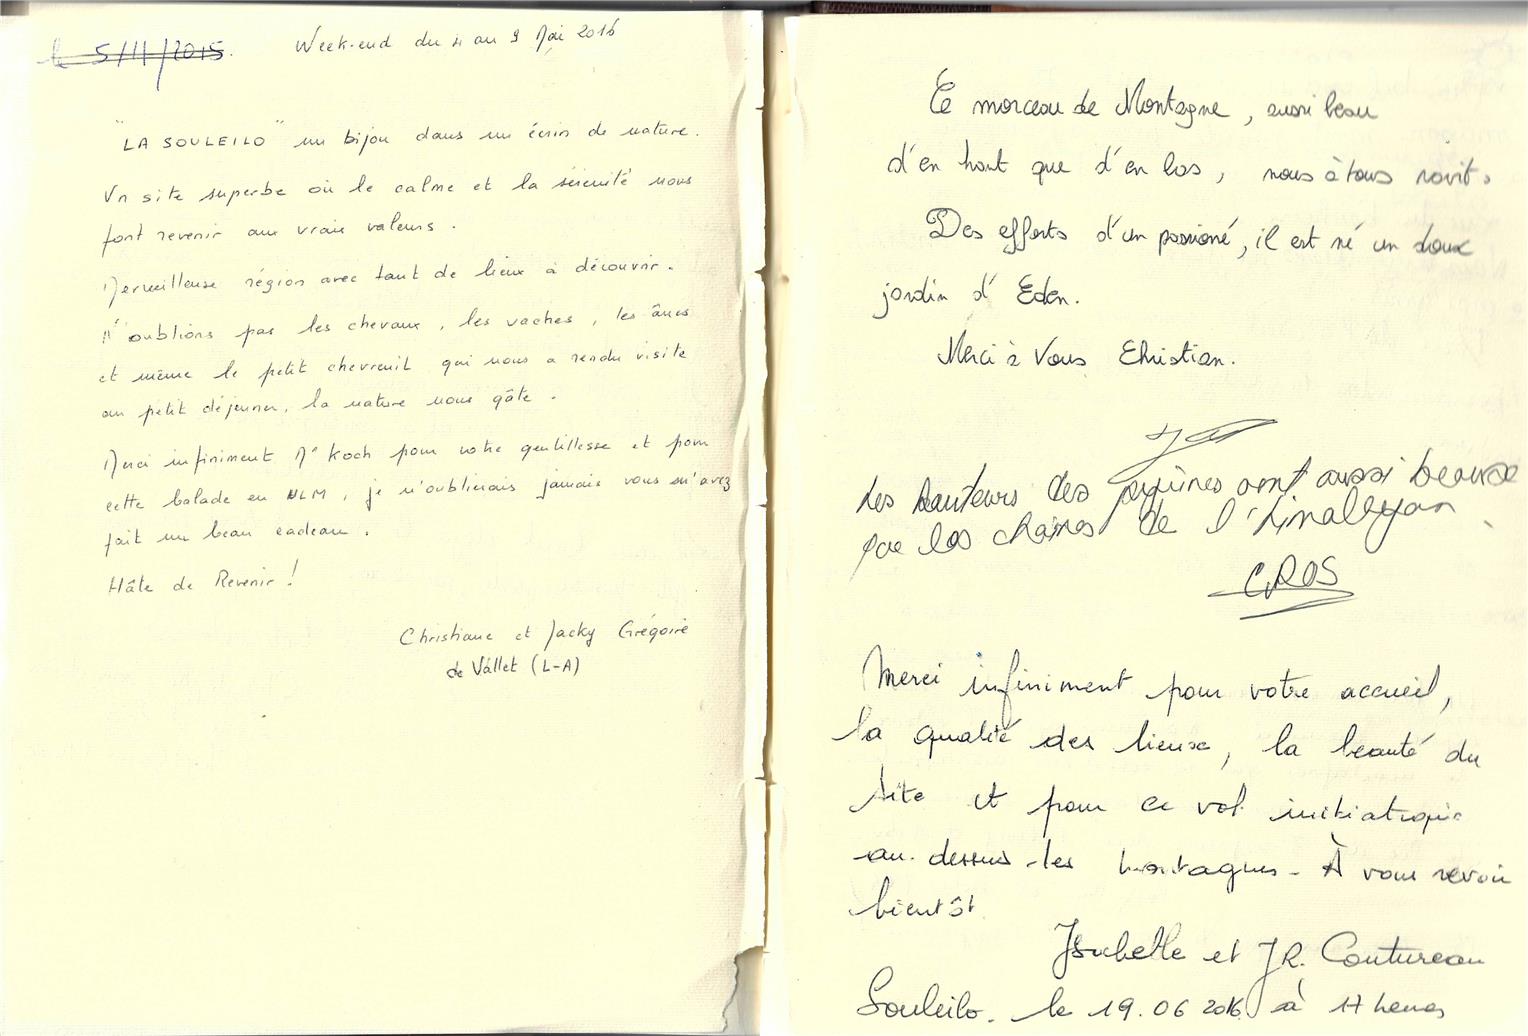 le 5/11/2015.
Week-end du 4 au 9 Mai 2016
"LA SOULEILO" un bijou dans un écrin de nature.
Un site superbe où le calme et la sérénité nous
font revenir aux vraies valeurs.
Merveilleuse région avec tant de lieux à découvrir.
N'oublions pas les chevaux, les vaches, les ânes
et même le petit chevreuil qui nous a rendu visite
au petit déjeuner, la nature nous gâte.
Merci infiniment Mr Koch pour votre gentillesse et pour
cette balade en ULM, je n'oublierais jamais vous m'avez
fait un beau cadeau.
Hâte de Revenir !
Christiane et Jacky Grégoire
de Vallet (L-A)
Ce morceau de Montagne, aussi beau
d'en haut que d'en bas, nous à tous ravit.
Des efforts d'un passioné, il est né un doux
jardin d'Eden.
Merci à Vous Christian.
Les hauteurs des pyrùines ont aussi beaux
que les chaines de l'himallyan
CROS
Merci infiniment pour votre accueil,
la qualité des lieux, la beauté du
site et pour ce vol
au-dessus-les montagnes - À vous revoir
bientôt
Isabelle et J.R. Coutureau
Souleilo. le 19.06 2016 à 17 heures